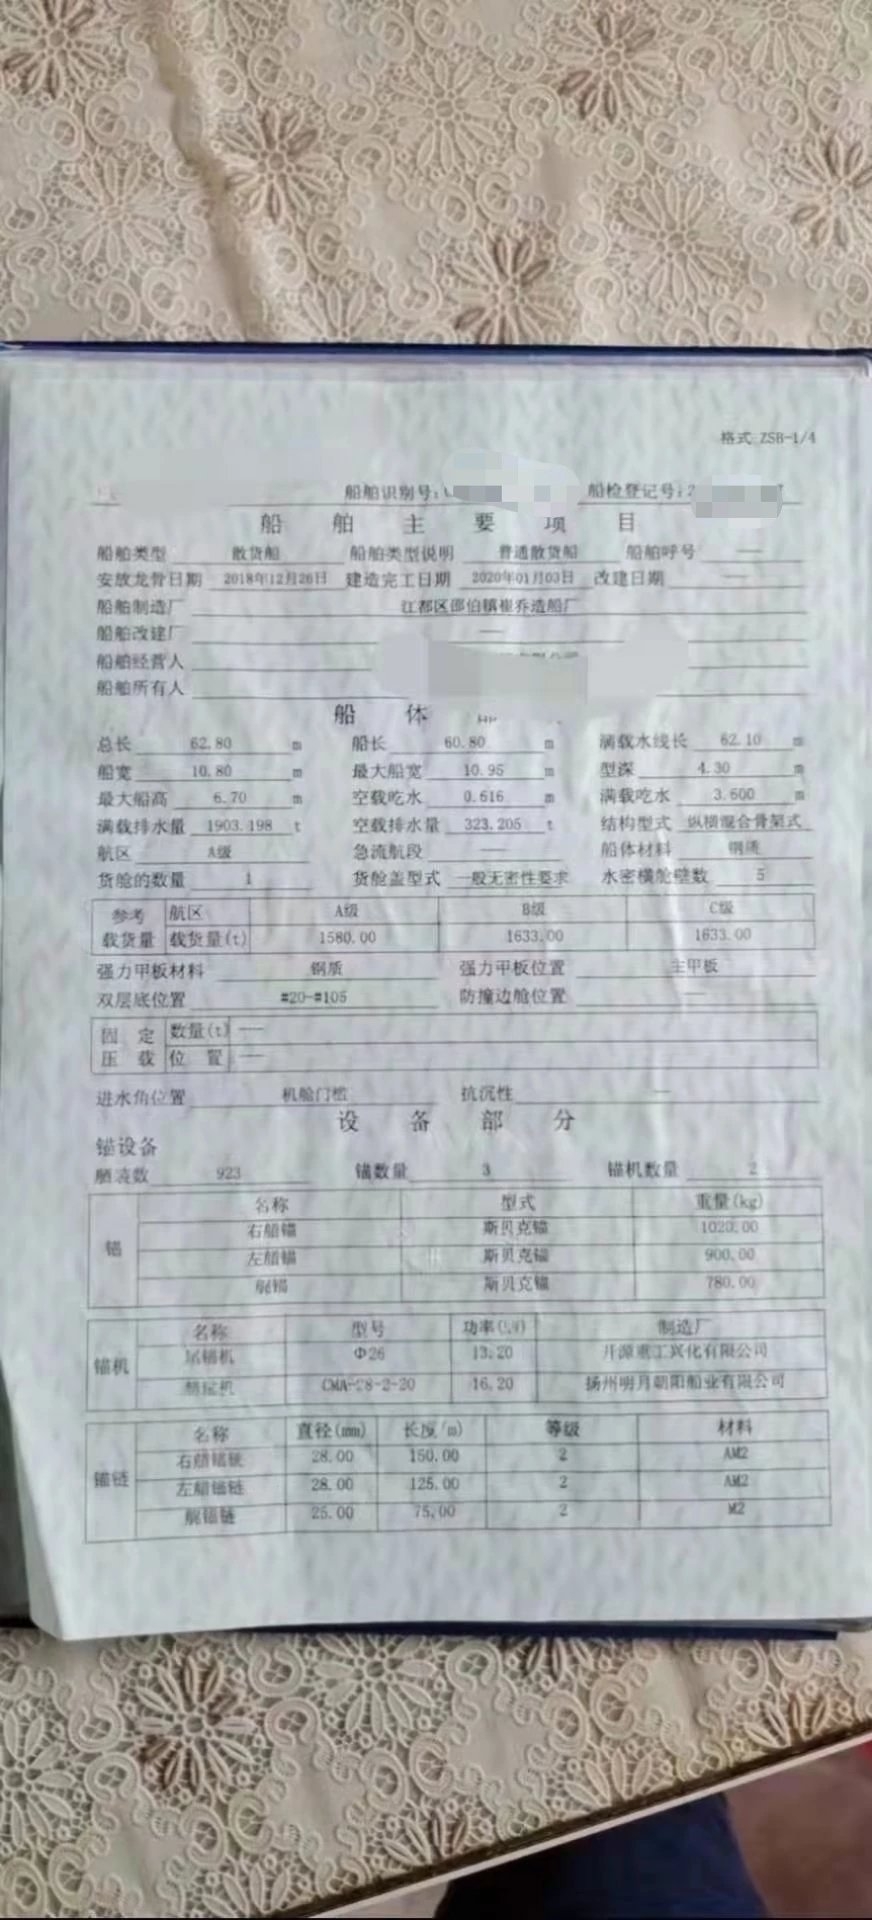 格式:ZSB-1/4
船舶识别号: 船检登记号:2
船舶主要项目
船舶类型 散货船 船舶类型说明 普通散货船 船舶呼号 —
安放龙骨日期 2018年12月26日 建造完工日期 2020年01月03日 改建日期 —
船舶制造厂 江都区邵伯镇崔乔造船厂
船舶改建厂 —
船舶经营人
船舶所有人
船体
总长 62.80 m 船长 60.80 m 满载水线长 62.10 m
船宽 10.80 m 最大船宽 10.95 m 型深 4.30 m
最大船高 6.70 m 空载吃水 0.616 m 满载吃水 3.600 m
满载排水量 1903.198 t 空载排水量 323.205 t 结构型式 纵横混合骨架式
航区 A级 急流航段 — 船体材料 钢质
货舱的数量 1 货舱盖型式 一般无密性要求 水密横舱壁数 5
参考 航区 A级 B级 C级
载货量 载货量(t) 1580.00 1633.00 1633.00
强力甲板材料 钢质 强力甲板位置 主甲板
双层底位置 #20-#105 防撞边舱位置 —
固定 数量(t) —
压载 位置 —
进水角位置 机舱门槛 抗沉性 —
设备部分
锚设备
舾装数 923 锚数量 3 锚机数量 2
名称 型式 重量(kg)
锚 右艏锚 斯贝克锚 1020.00
左艏锚 斯贝克锚 900.00
艉锚 斯贝克锚 780.00
名称 型号 功率(kW) 制造厂
锚机 尾锚机 Φ26 13.20 开源重工兴化有限公司
CMA-28-2-20 16.20 扬州明月朝阳船业有限公司
名称 直径(mm) 长度(m) 等级 材料
锚链 右艏锚链 28.00 150.00 2 AM2
左艏锚链 28.00 125.00 2 AM2
艉锚链 25.00 75.00 2 M2